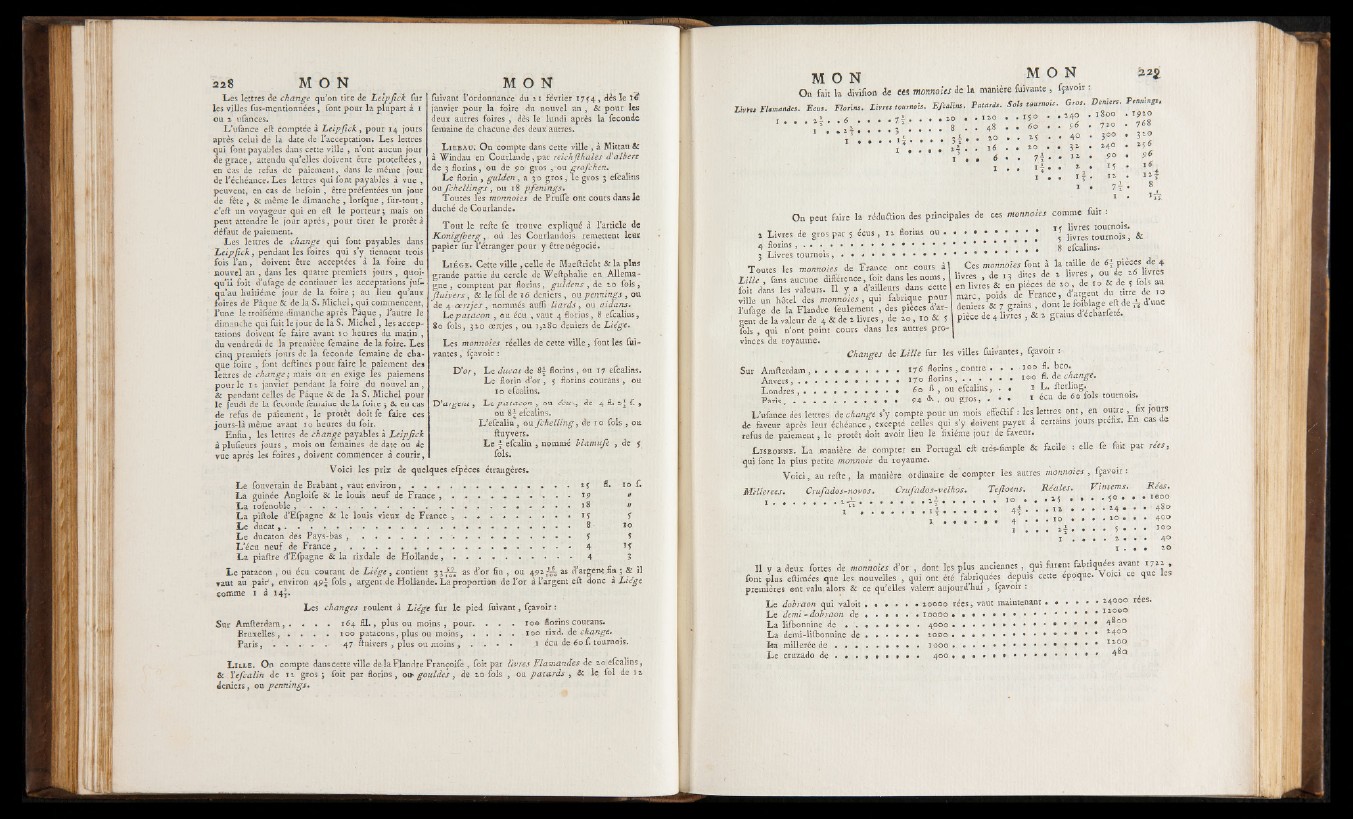 228 M O N M O N
Les lettres de change qu'on tire de Leipsick sur
les villes sus-mentionnées, sont pour la plupart à 1
ou 2 usances.
L'usance est comptée à Leipsick, pour 14 jours
après celui de la date de l'acceptation. Les lettres
qui sont payables dans cette ville, n'ont aucun jour
de grace, attendu qu'elles doivent être protestées,
en cas de refus de paiement, dans le même jour
de l'échéance. Les lettres qui sont payables à vue,
peuvent, en cas de besoin, être présentées un jour
de fête, & même le dimanche, lorsque, sur-tout,
c'est un voyageur qui en est le porteur; mais on
peut attendre le jour après, pour tirer le protêt à
défaut de paiement.
Les lettres de change qui sont payables dans
Leipsick, pendant les foires qui s'y tiennent trois
fois l'an, doivent être acceptées à la foire du
nouvel an, dans les quatre premiers jours, quoi-
qu'il soit d'usage de continuer les acceptations jus-
qu'au huitième jour de la foire; au lieu qu'aux
foires de Pâque & de la S. Michel, qui commencent,
l'une le troisième dimanche après Pâque, l'autre le
dimanche qui suit le jour de la S. Michel, les accep-
tations doivent se faire avant 10 heures du matin,
du vendredi de la première semaine de la foire. Les
cinq premiers jours de la seconde semaine de cha-
que foire, sont destinés pour faire le paiement des
lettres de change; mais on en exige les paiemens
pour le 12 janvier pendant la foire du nouvel an,
& pendant celles de Pâque & de la S. Michel pour
le jeudi de la seconde semaine de la foire; & en cas
de refus de paiement, le protêt doit se faire ces
jours-là même avant 10 heures du soir.
Enfin, les lettres de change payables à Leipsick
à plusieurs jours, mois ou semaines de date ou de
vue après les foires, doivent commencer à courir,
suivant l'ordonnance du 21 février 1754, dès le 16
janvier pour la foire du nouvel an, & pour les
deux autres foires, dès le lundi après la seconde
semaine de chacune des deux autres.
LIEBAU. On compte dans cette ville, à Mittau &
à Windau en Courlande, par reichsthales d'albert
de 3 florins, ou de 90 gros, ou groschen.
Le florin, gulden, a 30 gros, le gros 3 escalins
ou schellings, ou 18 pfenings.
Toutes les monnoies de Prusse ont cours dans le
duché de Courlande.
Tout le reste se trouve expliqué à l'article de
Konigsberg, où les Courlandois remettent leur
papier sur l'étranger pour y être négocié.
LIÉGE. Cette ville, celle de Maestricht & la plus
grande partie du cercle de Westphalie en Allema-
gne, comptent par florins, guldens, de 20 sols,
stuivers, & le sol de 16 deniers, ou pennings, ou
de 4 oertjes, nommés aussi liards, ou aidans.
Le patacon, ou écu, vaut 4 florins, 8 escalins,
80 sols, 320 oertjes, ou 1,280 deniers de Liége.
Les monnoies réelles de cette ville, sont les sui-
vantes, sçavoir:
D'or, Le ducat de 8½ florins, ou 17 escalins.
Le florin d'or, 5 florins courans, ou
10 escalins.
D'argent, Le patacon, ou écus, de 4 fl. 2½ s.,
ou 8¼ escalins.
L'escalin, ou schelling, de 10 sols, ou
stuyvers.
Le ½ escalin, nommé blamuse, de 5
sols.
Voici les prix de quelques espèces étrangères.
Le souverain de Brabant, vaut environ, . . . . . 15 fl. 10 s.
La guinée Angloise & le louis neuf de France, . . . . . 19 »
La rosenoble, . . . . . 18 »
La pistole d'Espagne & le louis vieux de France, . . . . . 15 5
Le ducat, . . . . . 8 10
Le ducaton des Pays-bas, . . . . . 5 5
L'écu neuf de France, . . . . . 4 15
La piastre d'Espagne & la rixdale de Hollande, . . . . . 4 3
Le patacon, ou écu courant de Liége, contient as d'or fin, ou as d'argent fin; & il
vaut au pair, environ 49¼ sols, argent de Hollande. La proportion de l'or à l'argent est donc à Liége
comme 1 à
Les changes roulent à Liége sur le pied suivant, sçavoir:
Sur Amsterdam, . . . . 164 fll., plus ou moins, pour. . . . 100 florins courans.
Bruxelles, . . . . 100 patacons, plus ou moins, . . . . 100 rixd. de change.
Paris, . . . . 47 stuivers, plus ou moins, . . . . 1 écu de 60 s. tournois.
LILLE. On compte dans cette ville de la Flandre Françoise, soit par livres Flamandes de 20 escalins,
& l'escalin de 12 gros; soit par florins, ou gouldes, de 20 sols, ou patards, & le sol de 12
deniers, ou pennings.
M O N M O N 229
On fait la division de ces monnoies de la manière suivante, sçavoir:
Livres Flamandes. Ecus. Florins. Livres tournois. Escalins. Patards. Sols tournois. Gros. Deniers. Pennings.
1 . . . 2½ . . 6 . . . . 7½ . . . . 20 . . 120 . . 150 . . 240 . 1800 . 1920
1 . . 2⅖ . . . . 3 . . . . 8 . . 48 . . 60 . . 96 . 720 . 768
1 . . . . 1¼ . . . . 3⅓ . . 20 . . 25 . . 40 . 300 . 320
1 . . . . 2⅔ . . 16 . . 20 . . 32 . 240 . 256
1 . . 6 . . 7½ . . 12 . 90 . 96
1 . . 1¼ . . 2 . 15 . 16
1 . . 1⅗ . 12 . 12⅘
1 . 7½ . 8
1 . 1 1/15
On peut faire la réduction des principales de ces monnoies comme suit:
2 Livres de gros par 5 écus, 12 florins ou . . . . . 15 livres tournois.
4 florins, . . . . . 5 livres tournois, &
3 Livres tournois, . . . . . 8 escalins.
Toutes les monnoies de France ont cours à
Lille, sans aucune différence, soit dans les noms,
soit dans les valeurs. Il y a d'ailleurs dans cette
ville un hôtel des monnoies, qui fabrique pour
l'usage de la Flandre seulement, des pièces d'ar-
gent de la valeur de 4 & de 2 livres, de 20, 10 & 5
sols, qui n'ont point cours dans les autres pro-
vinces du royaume.
Ces monnoies sont à la taille de pièces de 4
livres, de 13 dites de 2 livres, ou de 26 livres
en livres & en pièces de 20, de 10 & de 5 sols au
marc, poids de France, d'argent du titre de 10
deniers & 7 grains, dont le foiblage est de d'une
pièce de 4 livres, & 2 grains d'écharseté.
Changes de Lille sur les villes suivantes, sçavoir:
Sur Amsterdam, . . . . . 176 florins, contre . . . 100 fl. bco.
Anvers, . . . . . 170 florins, . . . . . 100 fl. de change.
Londres, . . . . . 60 fl, ou escalins, . . . 1 L. sterling.
Paris, . . . . . 94 d, ou gros, . . . 1 écu de 60 sols tournois.
L'usance des lettres de change s'y compte pour un mois effectif: les lettres ont, en outre, six jours
de faveur après leur échéance, excepté celles qui s'y doivent payer à certains jours préfix. En cas de
refus de paiement, le protêt doit avoir lieu le sixième jour de faveur.
LISBONNE. La manière de compter en Portugal est très-simple & facile: elle se fait par rées,
qui sont la plus petite monnoie du royaume.
Voici, au reste, la manière ordinaire de compter les autres monnoies, sçavoir:
Millerees. Crusados-novos. Crusados-velhos. Testoens. Réales. Vintems. Réos.
1 . . . . . 2 1/12 . . . . . 2½ . . . . . 10 . . . 25 . . . . 50 . . . 1000
1 . . . . . 1⅕ . . . . . 4⅘ . . . 12 . . . . 24 . . . 480
1 . . . . . 4 . . . 10 . . . . 20 . . . 400
1 . . . 2½ . . . . 5 . . . 100
1 . . . . 2 . . . 40
1 . . . 20
Il y a deux sortes de monnoies d'or, dont les plus anciennes, qui furent fabriquées avant 1722,
sont plus estimées que les nouvelles, qui ont été fabriquées depuis cette époque. Voici ce que les
premières ont valu alors & ce qu'elles valent aujourd'hui, sçavoir:
Le dobraon qui valoit . . . . . 20000 rées, vaut maintenant . . . . . 24000 rées.
Le demi-dobraon de . . . . . 10000 . . . . . 12000
La lisbonnine de . . . . . 4000 . . . . . 4800
La demi-lisbonnine de . . . . . 2000 . . . . . 2400
La millerée de . . . . . 1000 . . . . . 1200
Le cruzado de . . . . . 400 . . . . . 480